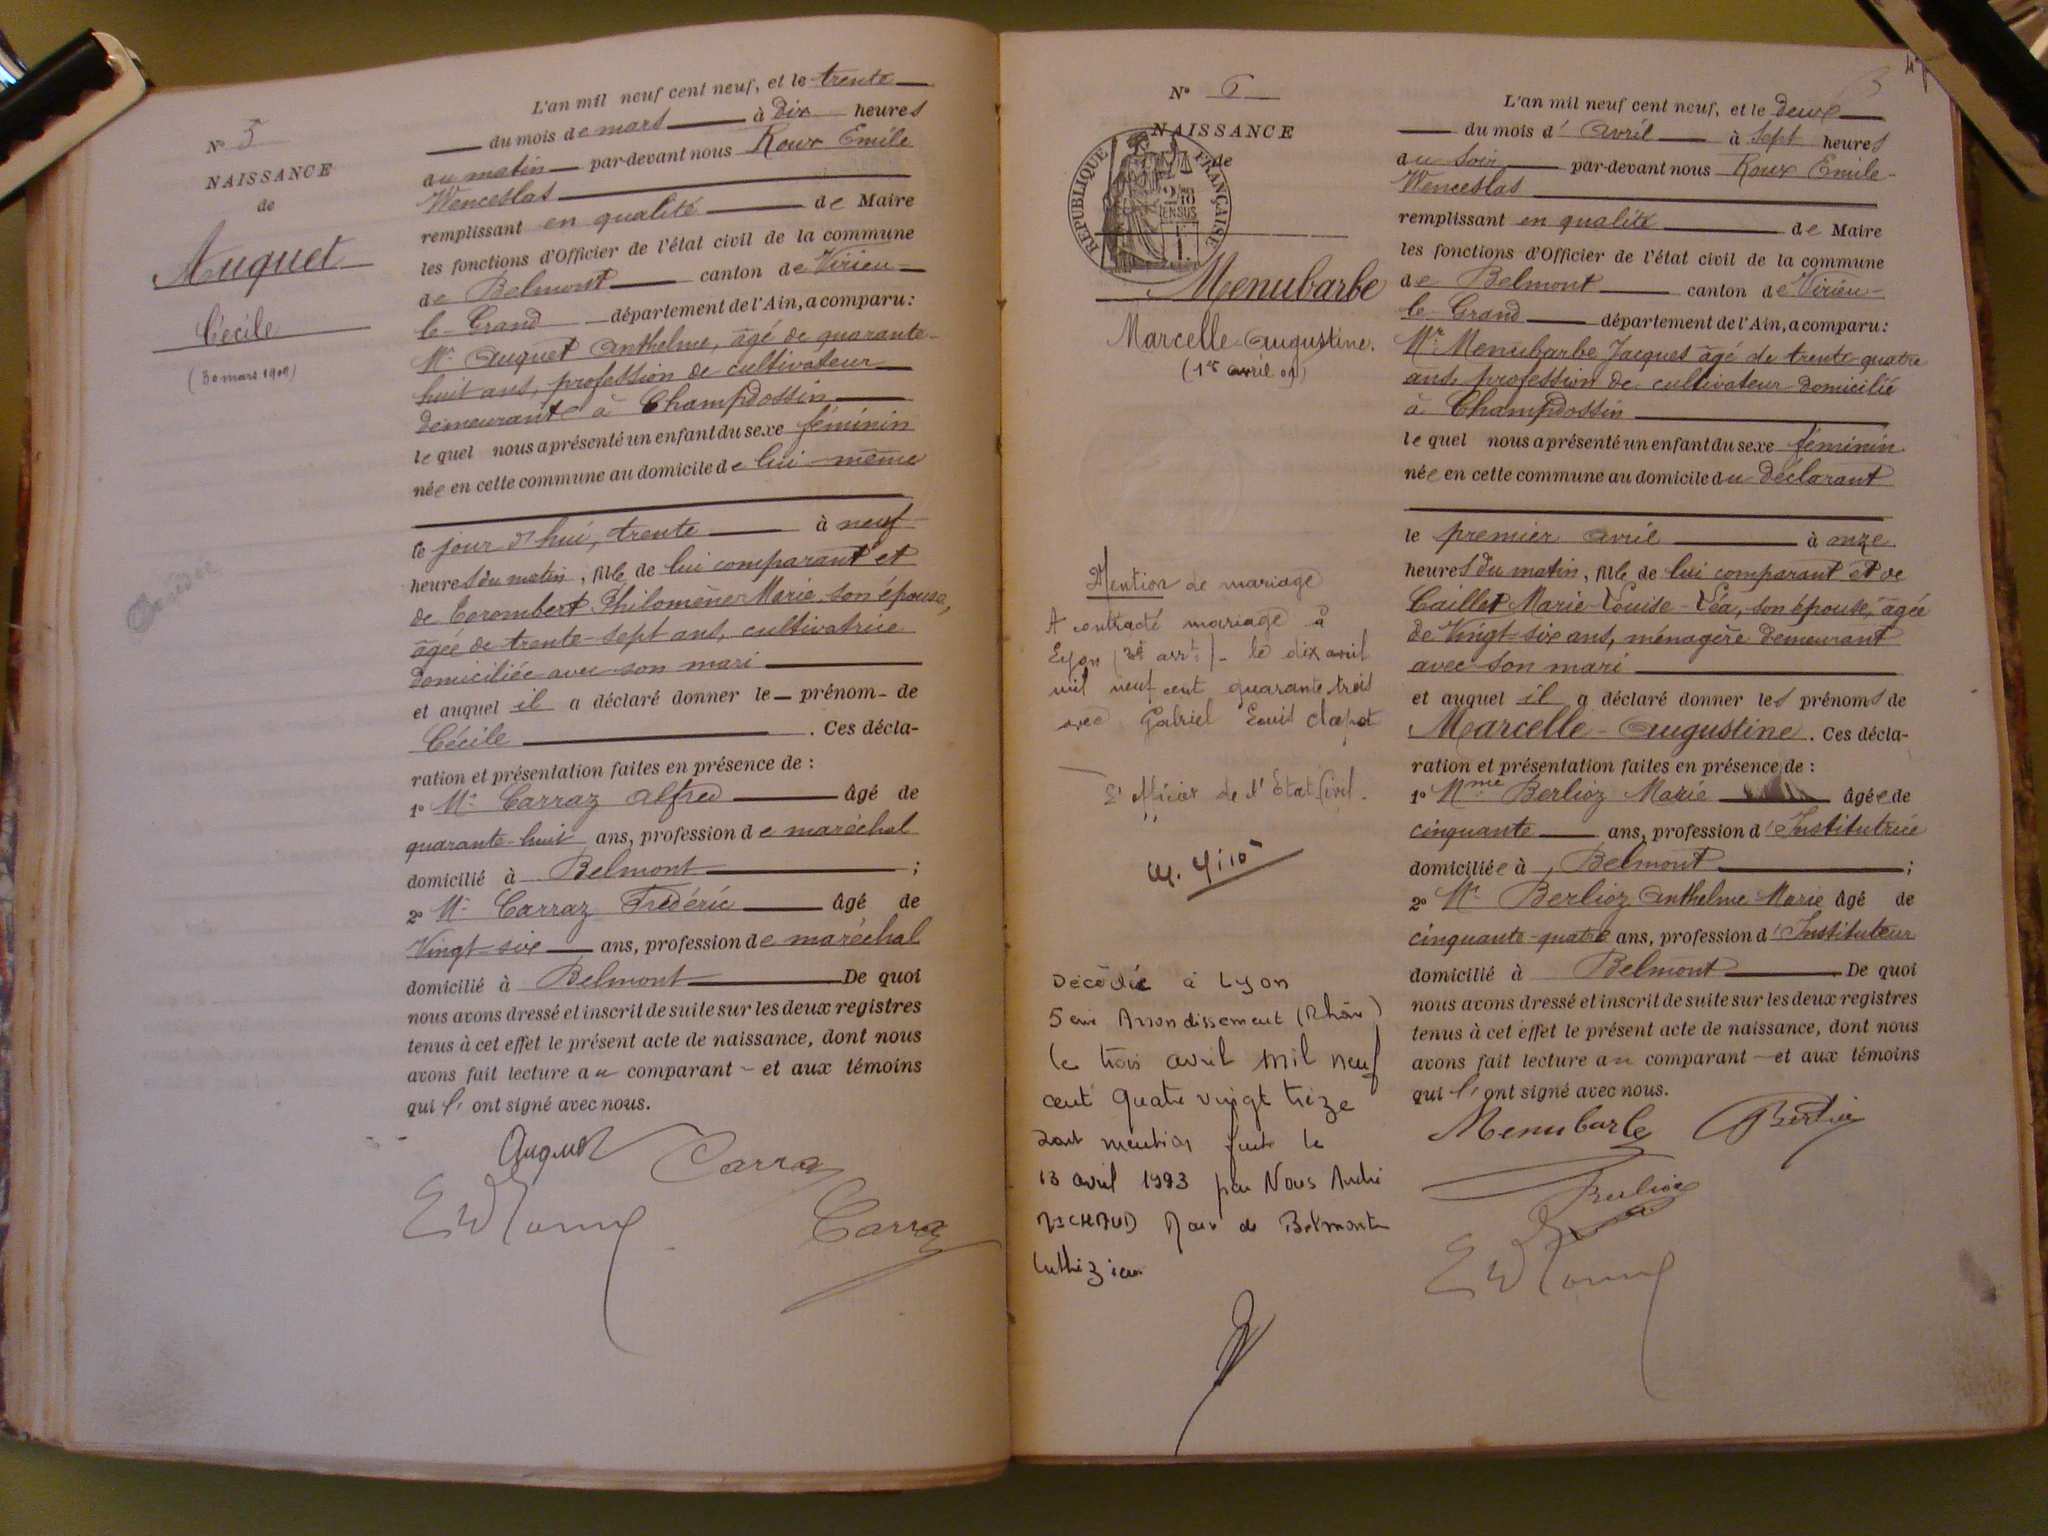 N° 5
NAISSANCE
de
Auquet
Cécile
(30 mars 1909)
L'an mil neuf cent neuf, et le trente
du mois de mars à dix heures
du matin par-devant nous Roux Emile
Wenceslas
remplissant en qualité de Maire
les fonctions d'Officier de l'état civil de la commune
de Belmont canton de Virieu-
le-Grand département de l'Ain, a comparu:
Mr. Auquet Anthelme, âgé de quarante-
huit ans, profession de cultivateur
demeurante à Champdossin
lequel nous a présenté un enfant du sexe féminin
née en cette commune au domicile de lui-même
le jour d'hui, trente à neuf
heures du matin, fille de lui comparant et
de Corombert Philomène Marie son épouse,
âgée de trente-sept ans, cultivatrice
domiciliée avec son mari
et auquel il a déclaré donner le prénom de
Cécile . Ces décla-
ration et présentation faites en présence de :
1° Mr. Carraz Alfred âgé de
quarante-huit ans, profession de maréchal
domicilié à Belmont ;
2° Mr. Carraz Frédéric âgé de
Vingt-six ans, profession de maréchal
domicilié à Belmont De quoi
nous avons dressé et inscrit de suite sur les deux registres
tenus à cet effet le présent acte de naissance, dont nous
avons fait lecture au comparant et aux témoins
qui l' ont signé avec nous.
Auquet Carraz
Carraz
N° 6
NAISSANCE
de
RÉPUBLIQUE FRANÇAISE
Menubarbe
Marcelle-Augustine.
(1er avril 09)
Mention de mariage
A contracté mariage à
Lyon (3e arrt) le dix avril
mil neuf cent quarante trois
avec Gabriel Louis Clapot
L'officier de l'Etat Civil.
Décédée à Lyon
5ème Arrondissement (Rhône)
le trois avril mil neuf
cent quatre vingt treize
dont mention faite le
13 avril 1993 par Nous André
MICHAUD Maire de Belmont
Luthézieu
L'an mil neuf cent neuf, et le deux
du mois d' avril à sept heures
du soir par-devant nous Roux Emile-
Wenceslas
remplissant en qualité de Maire
les fonctions d'Officier de l'état civil de la commune
de Belmont canton de Virieu-
le-Grand département de l'Ain, a comparu:
Mr. Menubarbe Jacques âgé de trente-quatre
ans, profession de cultivateur domicilié
à Champdossin
lequel nous a présenté un enfant du sexe féminin
née en cette commune au domicile du déclarant
le premier avril à onze
heures du matin, fille de lui comparant et de
Caillet Marie-Louise-Léa, son épouse, âgée
de Vingt-six ans, ménagère demeurant
avec son mari
et auquel il a déclaré donner les prénoms de
Marcelle-Augustine . Ces décla-
ration et présentation faites en présence de :
1° Mme Berlioz Marie âgée de
cinquante ans, profession d'Institutrice
domiciliée à Belmont ;
2° Mr. Berlioz Anthelme Marie âgé de
cinquante-quatre ans, profession d'Instituteur
domicilié à Belmont De quoi
nous avons dressé et inscrit de suite sur les deux registres
tenus à cet effet le présent acte de naissance, dont nous
avons fait lecture au comparant et aux témoins
qui l' ont signé avec nous.
Menubarbe Berlioz
Berlioz